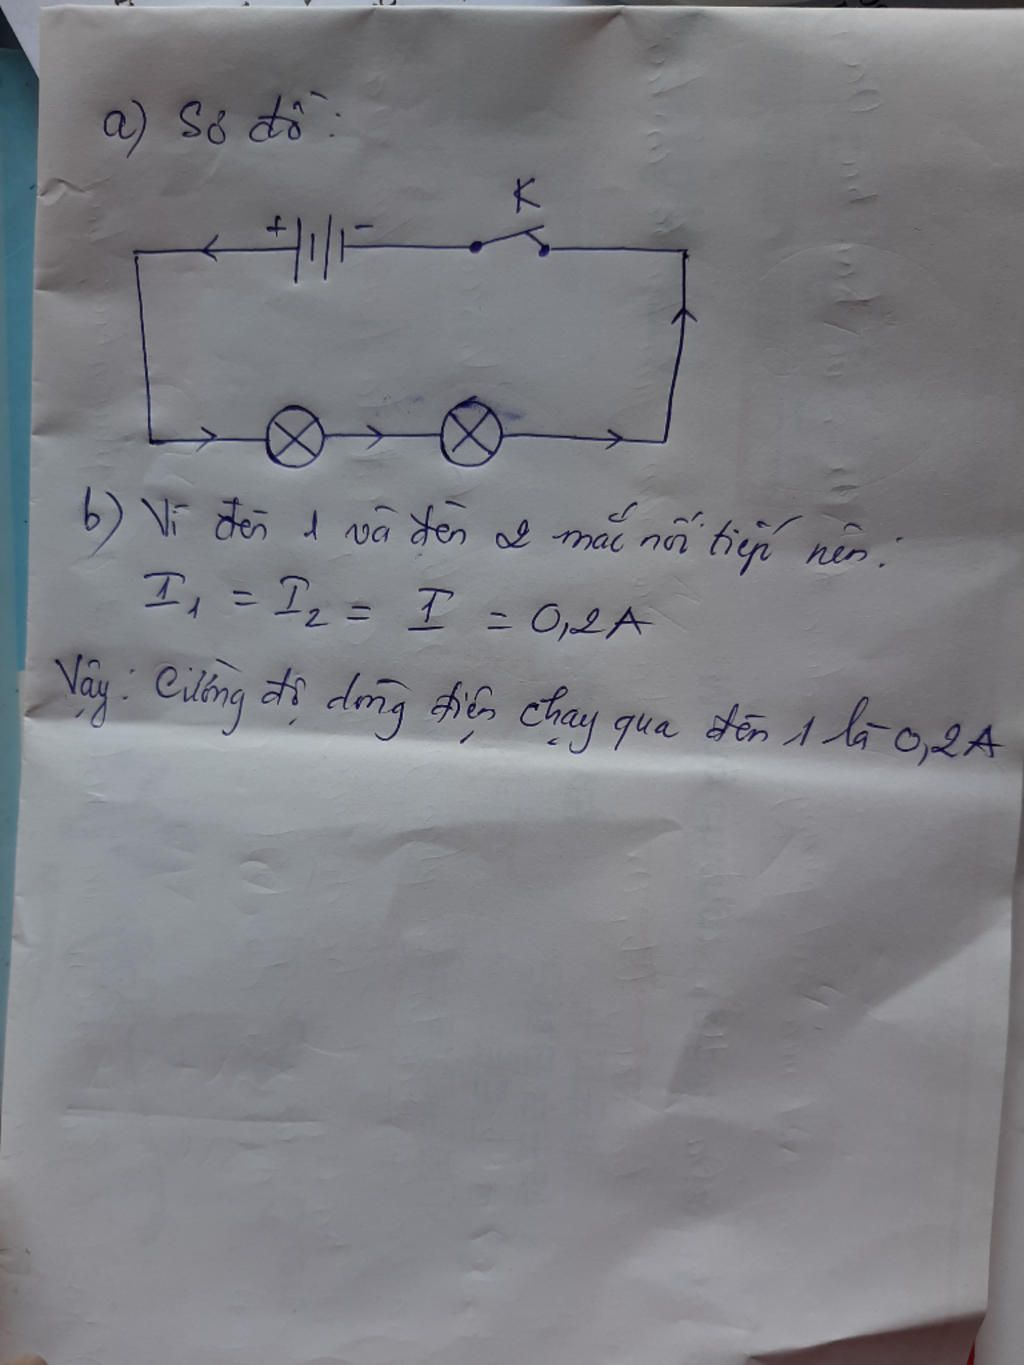 a) Sơ đồ:
K
+ -
b) Vì đèn 1 và đèn 2 mắc nối tiếp nên:
I₁ = I₂ = I = 0,2A
Vậy: Cường độ dòng điện chạy qua đèn 1 là 0,2A